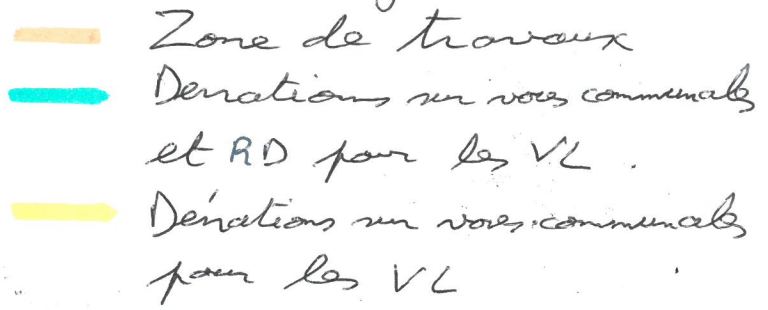 Zone de travaux
Déviations sur voies communales
et RD pour les VL.
Déviations sur voies communales
pour les VL